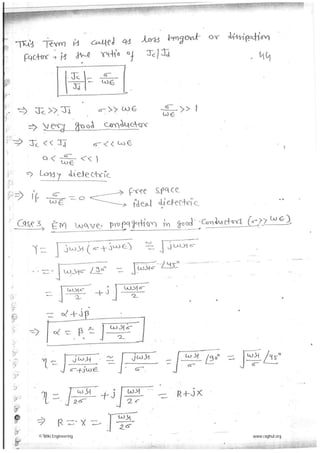 This Term is called as loss tangent or dissipation
factor. is the ratio of Jc/Jd
44
|Jc/Jd| = σ/ωE
⇒ Jc >> Jd σ >> ωE σ/ωE >> 1
⇒ very good conductor
⇒ Jc << Jd σ << ωE
0 < σ/ωE << 1
⇒ Lossy dielectric
⇒ if σ/ωE = 0 → Free space
→ ideal dielectric
Case 3, EM wave propagation in good conductors (σ >> ωE)
γ = √jωμ(σ+jωE) ≅ √jωμσ
= √ωμσ /90° = √ωμσ /45°
= √ωμσ/2 + j√ωμσ/2
= α+jβ
⇒ α = β ≅ √ωμσ/2
η = √jωμ/σ+jωE ≅ √jωμ/σ = √ωμ/σ /90° = √ωμ/σ /45°
η = √ωμ/2σ + j√ωμ/2σ = R+jX
⇒ R = X = √ωμ/2σ
www.raghul.org